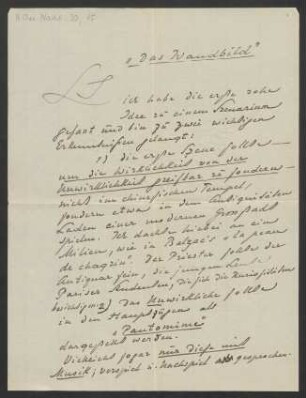 „Das Wandbild"
ich habe die erste rohe
Idee zu einem Scenarium
gefasst und bin zu zwei wichtigen
Erkenntnissen gelangt:
1) die erste Scene sollte –
um die Wirklichkeit von der
Unwirklichkeit greifbar zu sondern –
nicht im chinesischen Tempel,
sondern etwa in dem Antiquitäten
Laden einer modernen Grossstadt
spielen. Ich dachte hiebei an ein
Milieu, wie in Balzac's „la peau
de chagrin". Der Priester sollte der
Antiquar sein, die jungen Leute
Pariser Studenten, die sich die Kuriositäten
besichtigen. 2) das Unwirkliche sollte
in den Hauptzügen als
„Pantomime"
dargestellt werden.
Vielleicht sogar nur diese mit
Musik; Vorspiel u. Nachspiel gesprochen.